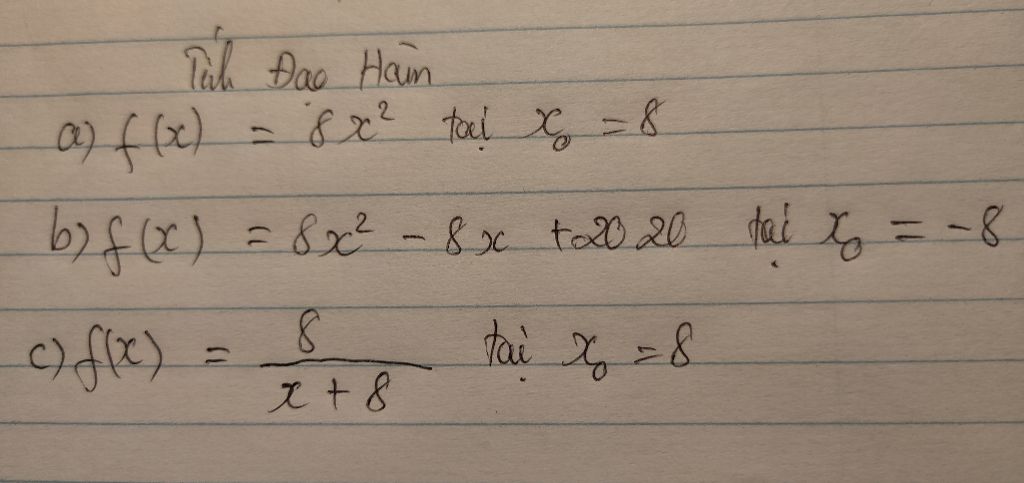 Tính Đạo Hàm
a) f(x) = 8x² tại x₀ = 8
b) f(x) = 8x² - 8x + 2020 tại x₀ = -8
c) f(x) = 8/(x + 8) tại x₀ = 8